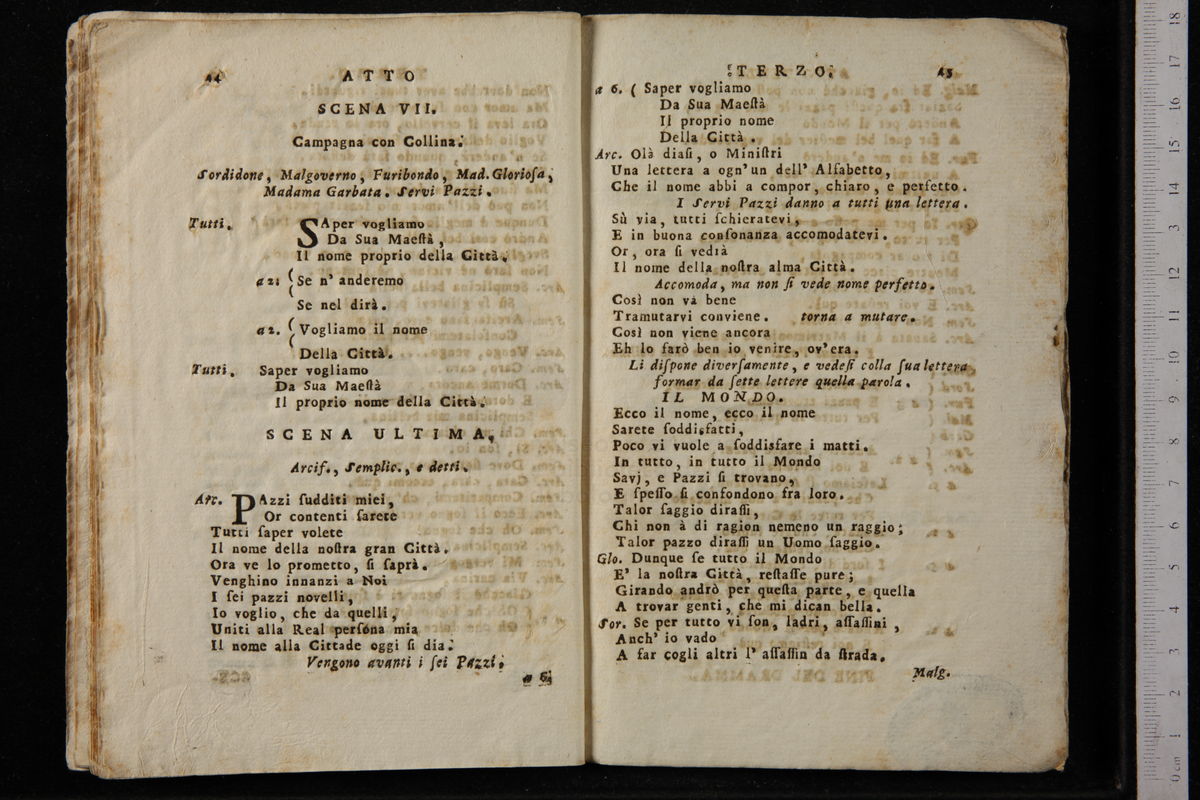 44
ATTO
SCENA VII.
Campagna con Collina.
Sordidone, Malgoverno, Furibondo, Mad. Gloriosa,
Madama Garbata. Servi Pazzi.
Tutti. SAper vogliamo
Da Sua Maeſtà,
Il nome proprio della Città.
a 2. (Se n' anderemo
Se nel dirà.
a 2. (Vogliamo il nome
Della Città.
Tutti. Saper vogliamo
Da Sua Maeſtà
Il proprio nome della Città.
SCENA ULTIMA.
Arciſ., Semplic., e detti.
Arc. PAzzi ſudditi miei,
Or contenti ſarete
Tutti ſaper volete
Il nome della noſtra gran Città.
Ora ve lo prometto, ſi ſaprà.
Venghino innanzi a Noi
I ſei pazzi novelli,
Io voglio, che da quelli,
Uniti alla Real perſona mia
Il nome alla Cittade oggi ſi dia.
Vengono avanti i ſei Pazzi.
a 6.
TERZO.
45
a 6. ( Saper vogliamo
Da Sua Maeſtà
Il proprio nome
Della Città.
Arc. Olà diaſi, o Miniſtri
Una lettera a ogn'un dell' Alfabetto,
Che il nome abbi a compor, chiaro, e perfetto.
I Servi Pazzi danno a tutti una lettera.
Sù via, tutti ſchieratevi,
E in buona conſonanza accomodatevi.
Or, ora ſi vedrà
Il nome della noſtra alma Città.
Accomoda, ma non ſi vede nome perfetto.
Così non và bene
Tramutarvi conviene. torna a mutare.
Così non viene ancora
Eh lo farò ben io venire, ov'era.
Li diſpone diverſamente, e vedeſi colla ſua lettera
formar da ſette lettere quella parola.
IL MONDO.
Ecco il nome, ecco il nome
Sarete ſoddisfatti,
Poco vi vuole a ſoddisfare i matti.
In tutto, in tutto il Mondo
Savj, e Pazzi ſi trovano,
E ſpeſſo ſi confondono fra loro.
Talor ſaggio diraſſi,
Chi non à di ragion nemeno un raggio;
Talor pazzo diraſſi un Uomo ſaggio.
Glo. Dunque ſe tutto il Mondo
E' la noſtra Città, reſtaſſe pure;
Girando andrò per queſta parte, e quella
A trovar genti, che mi dican bella.
Sor. Se per tutto vi ſon, ladri, aſſaſſini,
Anch' io vado
A far cogli altri l' aſſaſſin da ſtrada.
Malg.
0 cm 1 2 3 4 5 6 7 8 9 10 11 12 13 14 15 16 17 18